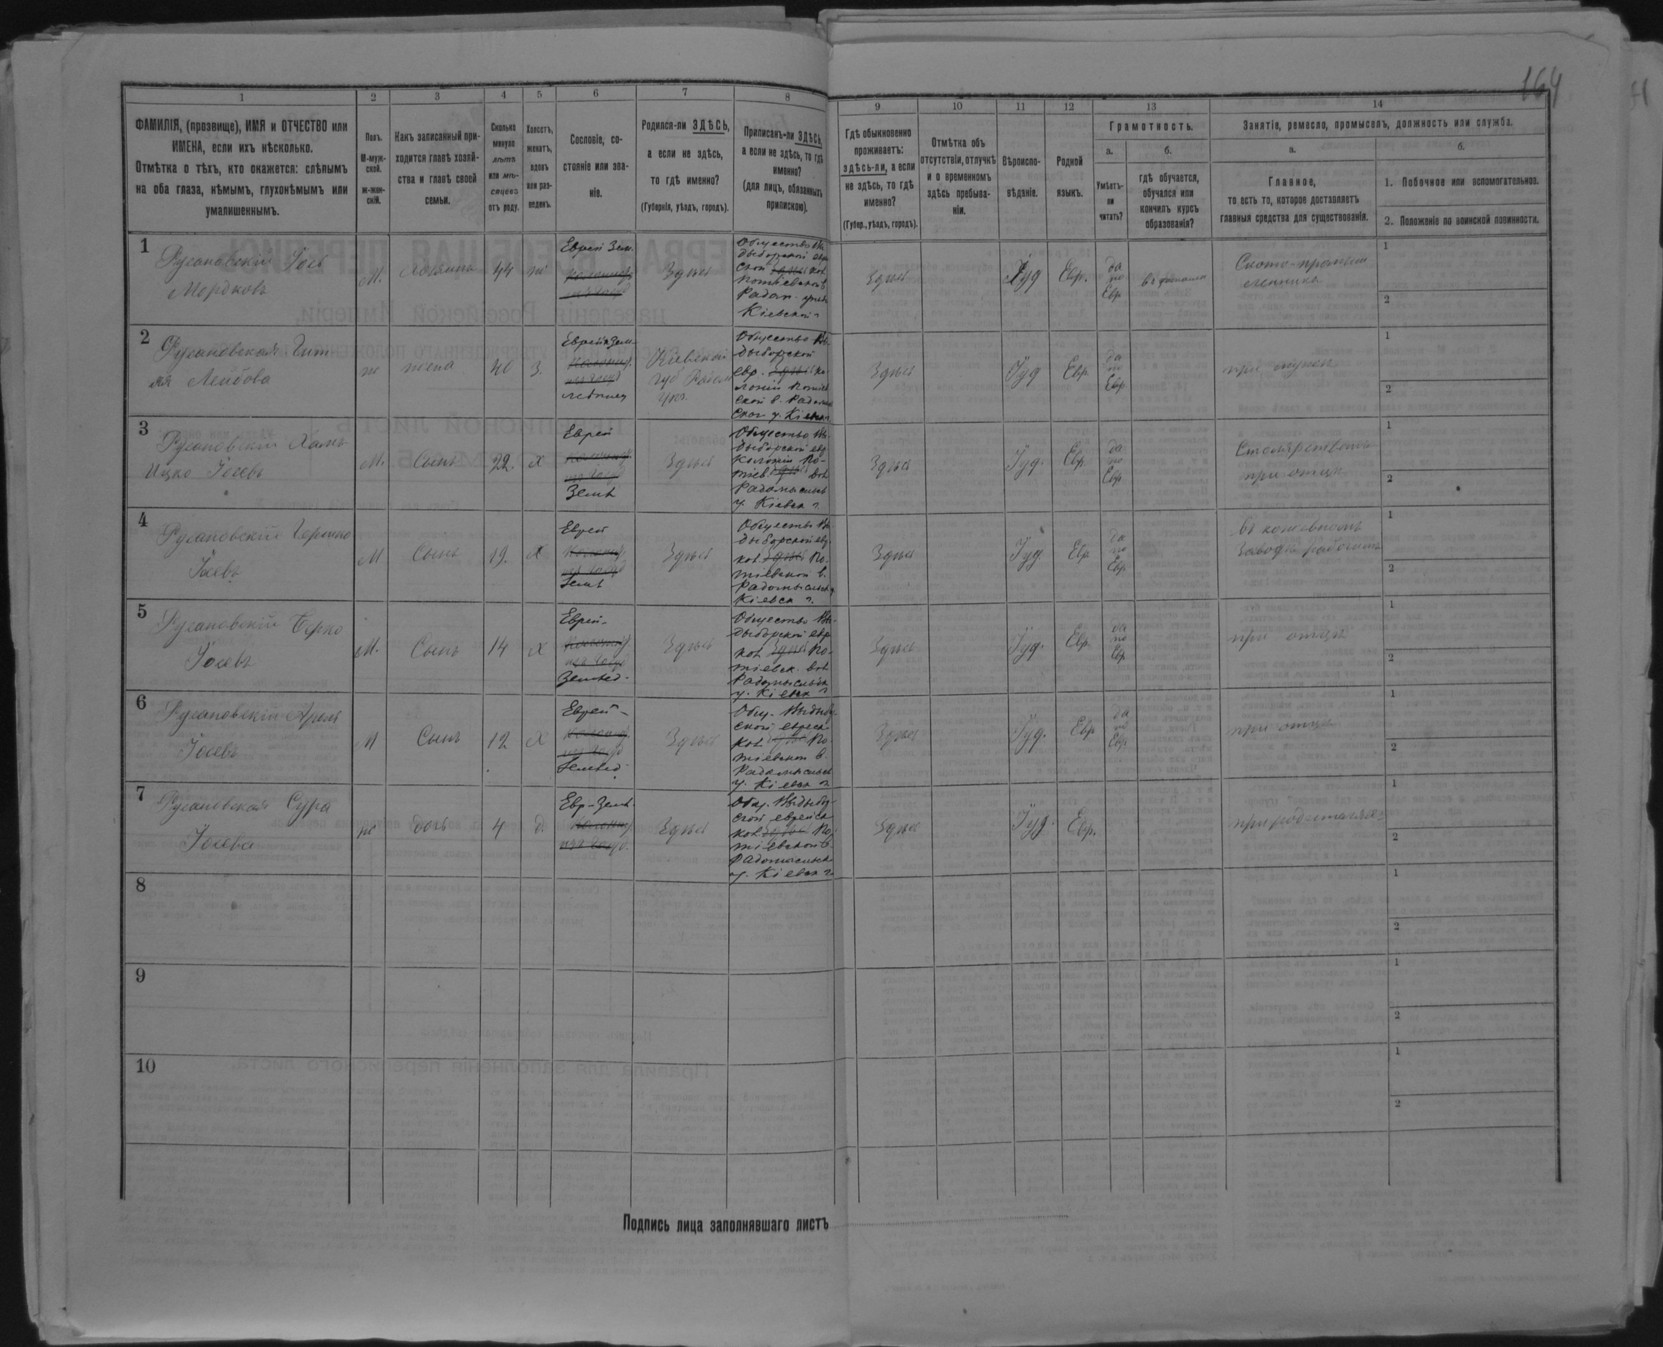 164
1
2
3
4
5
6
7
8
9
10
11
12
13
14
ФАМИЛІЯ, (прозвище), ИМЯ и ОТЧЕСТВО или
ИМЕНА, если ихъ нѣсколько.
Отмѣтка о тѣхъ, кто окажется: слѣпымъ
на оба глаза, нѣмымъ, глухонѣмымъ или
умалишеннымъ.
Полъ.
М-муж-
ской.
ж-жен-
скій.
Какъ записанный при-
ходится главѣ хозяй-
ства и главѣ своей
семьи.
Сколько
минуло
лѣтъ
или мѣ-
сяцевъ
отъ роду.
Холостъ,
женатъ,
вдовъ
или раз-
веденъ.
Сословіе, со-
стояніе или зва-
ніе.
Родился-ли ЗДѢСЬ,
а если не здѣсь,
то гдѣ именно?
(Губернія, уѣздъ, городъ).
Приписанъ-ли ЗДѢСЬ,
а если не здѣсь, то гдѣ
именно?
(для лицъ, обязанныхъ
припискою).
Гдѣ обыкновенно
проживаетъ:
здѣсь-ли, а если
не здѣсь, то гдѣ
именно?
(Губер., уѣздъ, городъ).
Отмѣтка объ
отсутствіи, отлучкѣ
и о временномъ
здѣсь пребыва-
ніи.
Вѣроиспо-
вѣданіе.
Родной
языкъ.
Грамотность.
а.
Умѣетъ-
ли
читать?
б.
гдѣ обучается,
обучался или
кончилъ курсъ
образованія?
Занятіе, ремесло, промыселъ, должность или служба.
а.
Главное,
то есть то, которое доставляетъ
главныя средства для существованія.
б.
1. Побочное или вспомогательное.
2. Положеніе по воинской повинности.
1
Русановскій Іось
Мордковъ
М.
хозяинъ
44
Еврей Зем.
Здѣсь
Общество Вы
дыборской евр
ской
Потіевской
Радом. уѣзда
Кіевской г
Здѣсь
Іуд
Евр.
да
по
Евр
Ското-промыш
ленника
1
2
2
Русановская Гит
ля Лейбова
ж
жена
40
З.
Еврей Зем.
Кіевской
губ Радом
уѣз.
Общество Вы
дыборской
евр. ко
лоніи Потіев
ской в. Радомы
ског у. Кіевск
Здѣсь
Іуд
Евр
да
по
Евр
при мужѣ
1
2
3
Русановскій Хаимъ
Ицко Іосевъ
М.
Сынъ
22.
х
Еврей
Земл
Здѣсь
Общество Вы
дыборской евр
колоніи По-
тіев. вол
Радомысльск
у. Кіевск г.
Здѣсь
Іуд.
Евр.
да
по
Евр
Столярствомъ
при отцѣ
1
2
4
Русановскій Гершко
Іосевъ
М
Сынъ
19.
Х
Еврей
Земл
Здѣсь
Общество Вы
дыборской евр.
кол По-
тіевской в.
Радомысльск у
Кіевск г.
Здѣсь
Іуд
Евр
да
по
Евр.
въ кожевномъ
заводѣ рабочимъ
1
2
5
Русановскій Берко
Іосевъ
М.
Сынъ
14
х
Еврей-
Землед-
Здѣсь
Общество Вы-
дыборской евр
кол По-
тіевск. вол
Радомысльск
у. Кіевск г
Здѣсь
Іуд.
Евр.
да
по
Евр
при отцѣ
1
2
6
Русановскій Арель
Іосевъ
М
Сынъ
12
х
Еврей-
Землед.
Здѣсь
Общ. Выдыбор
ской еврейск
кол. По
тіевской в.
Радомысльск
у. Кіевск г.
Здѣсь
Іуд.
Евр
да
по
Евр
при отцѣ
1
2
7
Русановская Сура
Іосева
ж
дочь
4
д
Евр-Земл.
Здѣсь
Общ. Выдыбор
ской еврейск
кол По
тіевской в.
Радомысльск
у. Кіевск г.
Здѣсь
Іуд.
Евр.
при родителяхъ
1
2
8
1
2
9
1
2
10
1
2
Подпись лица заполнявшаго листъ